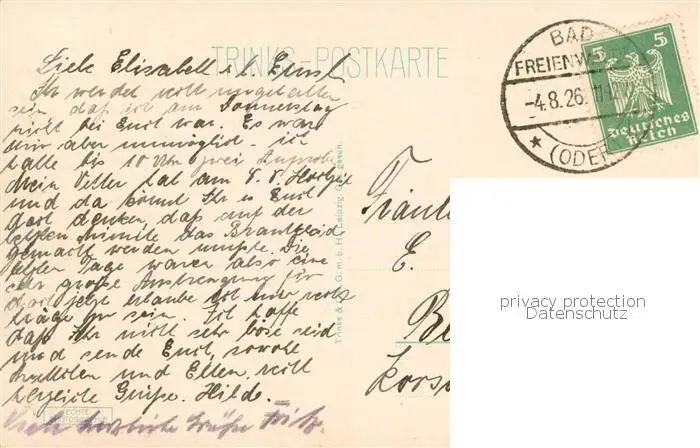 TRINKS-POSTKARTE
Liebe Elisabeth u. l. Ernst
Ihr werdet wohl ungehalten
sein, daß ich am Donnerstag
nicht bei Euch war. Es war
mir aber unmöglich. ich
hatte bis 10 Uhr zwei
Mein Vetter hat am 7. 8. Hochzeit
und da könnt Ihr es Euch
doch denken, daß auf der
letzten Minute das Brautkleid
gemacht werden mußte. Die
letzten Tage waren also eine
sehr große Anstrengung für
jetzt erlaube ich mir recht
träge zu sein. Ich hoffe
daß Ihr nicht sehr böse seid
und sende Euch, sowohl
und Eltern recht
herzliche Grüße. Hilde.
Viele herzliche Grüße Fritz.
ECHTE
Trinks & Co. G.m.b.H. Leipzig. Ges. gesch.
BAD
FREIENW
-4.8.26. 11
* (ODER
5 5
Deutsches
Reich
Fräule
E.
Be
privacy protection
Datenschutz